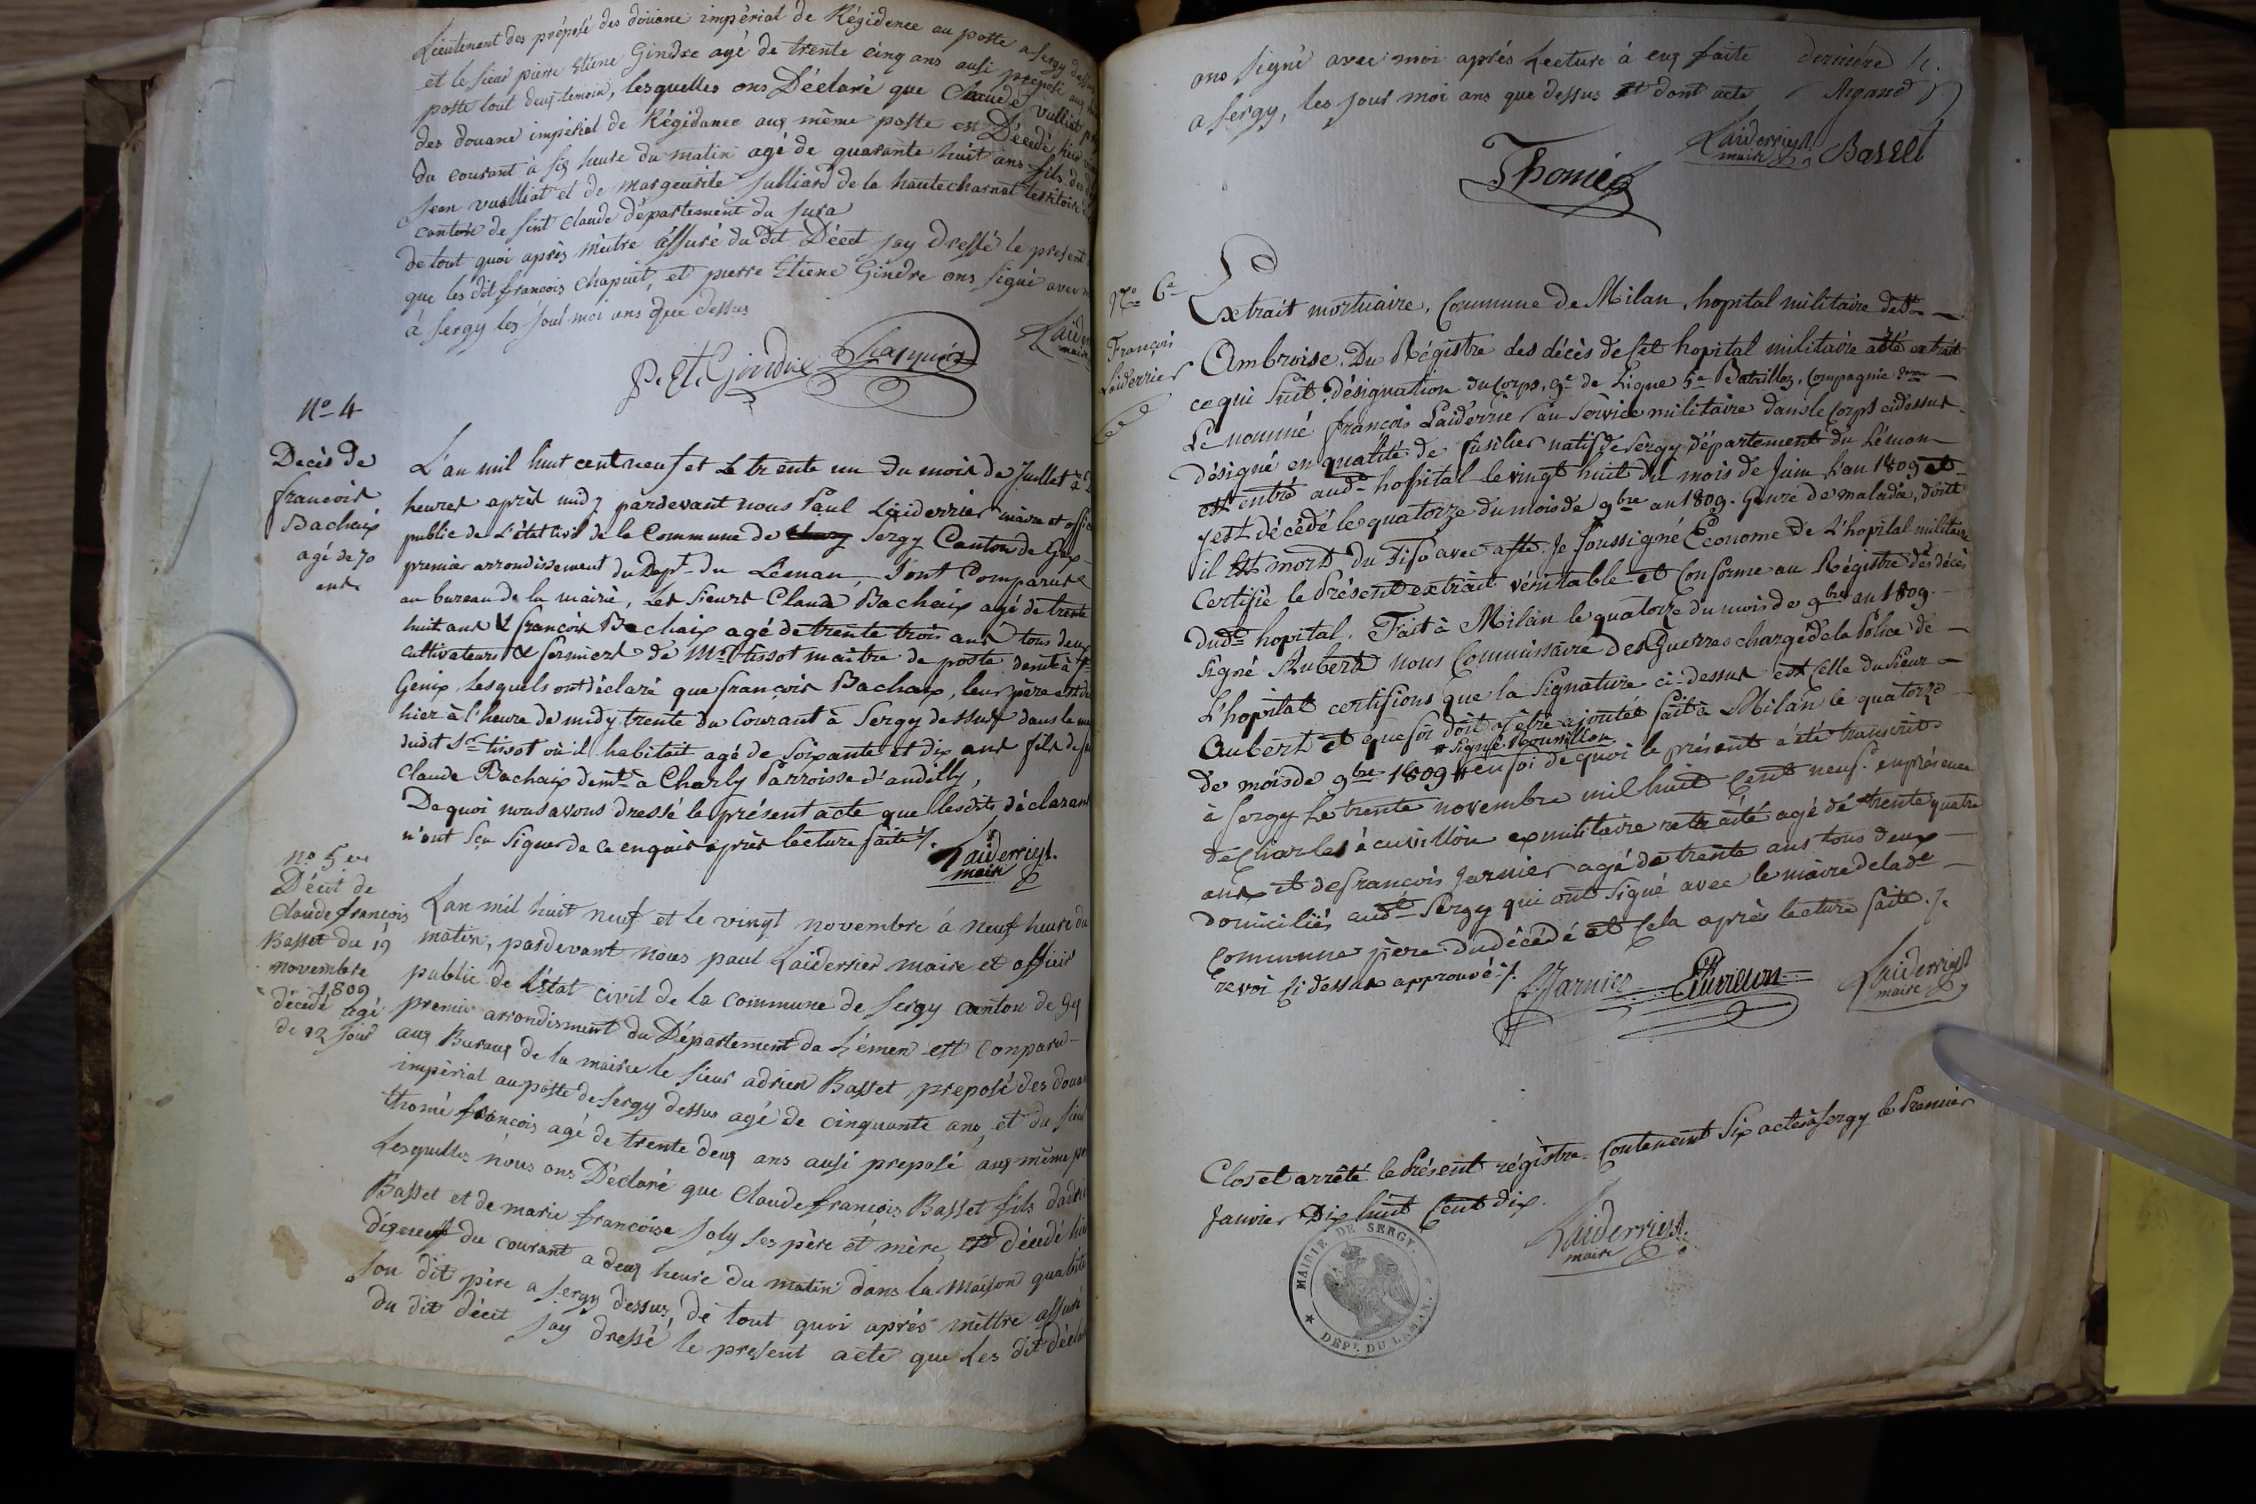 Lieutenant des préposé des doüane impérial de Régidence au poste a Sergy dessus
et le sieur pierre Etiene Gindre agé de trente cinq ans ausi préposé aux
poste tout deux temoin, lesquelles ons Déclaré que Claude Vuilliat
des douane impérial de Régidance aux même poste est Décedé hier
du courant à six heure du matin agé de quarante huit ans fils de
Jean vualliat et de margeurite Julliard de la hautecharnat territoire
canton de sint Claude département du Jura
de tout quoi après m'ètre assuré du dit Décet jay dressé le present
que les dit francois Chapuit, et pierre Etiene Gindre ons signé avec
à Sergy les jout moi ans que dessus
P. Et. Gindre Laider
maire
No 4
Decès de
francois
Bachaix
agé de 70
ans
L'an mil huit cent neuf et le trente un du mois de Juillet à
heures après midy pardevant nous Paul Laiderrier maire et offi
public de L'état civil de la Commune de Sergy Canton de Gex
premier arrondissement du Dept du Léman, sont Comparus
au bureau de la mairie, Les sieurs Claude Bachaix agé de trente
huit ans & francois Bachaix agé de trente trois ans tous deux
cultivateurs & fermiers de Mr tissot maitre de poste demt à St
Genix, lesquels ont déclaré que francois Bachaix, leur père est
hier à l'heure de midy trente du Courant à Sergy dessus dans la
dudit Sr tissot où il habitait agé de soixante et dix ans fils de
Claude Bachaix demt à Charly Parroisse d'andilly,
De quoi nous avons dressé le présent acte que lesdits déclarant
n'ont sçu signer de ce enquis après lecture faite ./.
Laiderrier
maire
no 5 em
Décit de
Claude françois
Basset du 19
novembre
1809
décédé agé
de 12 jour
Lan mil huit neuf et le vingt novembre à neuf heure du
matin, pardevant nous paul Laiderrier maire et officir
public de L'état civil de la commune de Sergy canton de Gex
premier arrondisment du Département du Lémen est Conparu
aux Buraux de la mairie le sieur adrien Basset préposé des doua
impérial au poste de Sergy dessus agé de cinquante ans, et du sieur
thomé francois agé de trente deux ans ausi preposé aux même po
Lesquelles nous ons Déclaré que Claude francois Basset fils dadri
Basset et de marie francoise Joly ses père et mère, est décedé hier
dixneuf du courant a deux heure du matin dans la maison quabite
son dit père a Sergy dessus, de tout quoi après m'ettre assuré
du dit décit jay dressé le present acte que les dit décla
ons signé avec moi après Lecture à eux faite dernière L.
a Sergy, les jour moi ans que dessus et dont acte
Laiderrier
maire
Basset
Thomé
No 6e
François
Laiderrier
Extrait mortuaire, Commune de Milan, hopital militaire de St
Ambroise. Du Régistre des décès de Cet hopital militaire a été extrait
ce qui suit. désignation du Corps, 9e de Ligne 5e Bataillon, Compagnie
Le nommé francois Laiderrier au service militaire dans le Corps cidessus
désigné en qualité de fusilier natif de Sergy département du Léman
est entré audt hopital le vingt huit du mois de Juin L'an 1809 et
y est décédé le quatorze du mois de 9bre an 1809. Genre de maladie, dont
il est mort du Tifo avec afte. Je soussigné Econome de L'hopital militaire
Certifie le Présent extrait véritable et Conforme au Régistre des décès
dudt hopital. Fait à Milan le quatorze du mois de 9bre an 1809.
signé Aubert nous Commissaire des Guerres chargé de la Police de
L'hopital certifions que la signature ci-dessus est Celle du sieur
Aubert et que foi doit y être ajoutée fait à Milan le quatorze
* signé Roumillon
de mois de 9bre 1809 * en foi de quoi le présent a été transcrit
à Sergy Le trente novembre mil huit Cent neuf. en présence
de Charles écuvillon exmilitaire retraité agé de trente quatre
ans et de francois Jarnier agé de trente ans tous deux
domiciliés audt Sergy qui ont signé avec le maire de lade
Commune père du décédé et Cela après lecture faite ./.
revoi Ci dessus approuvé ./.
Jarnier Laiderrier
maire
Clos et arrêté le Présent régistre Contenant six actes à Sergy le Premier
Janvier Dix huit Cent dix.
Laiderrier
maire
MAIRIE DE SERGY.
DÉPT. DU LÉMAN.